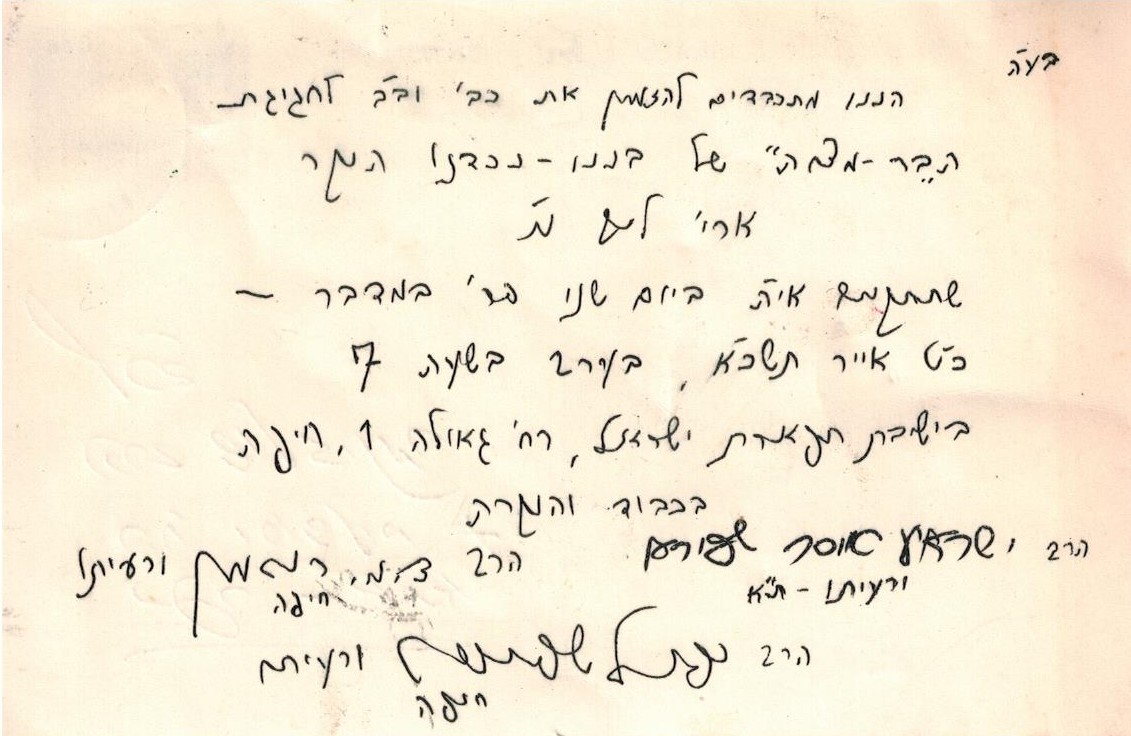 בע״ה
הננו מתכבדים להזמין את כב׳ וב״ב לחגיגת
ה״בר-מצוה״ של בננו-נכדנו היקר
ארי׳ ני״ו
שתתקיים אי״ה ביום שני פר׳ במדבר –
כ״ט אייר תשכ״א, בערב בשעה 7
בישיבת תפארת ישראל, רח׳ גאולה 1, חיפה
בכבוד והוקרה
הרב ישראל איסר שפירא הרב צ.מ. ורעיתו
ורעיתו - ת״א חיפה
הרב ורעיתו
חיפה